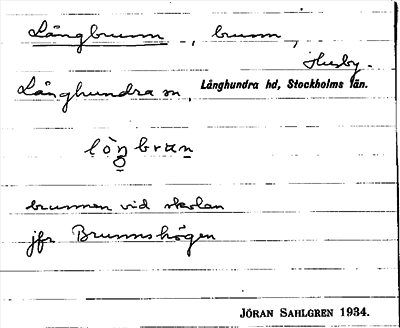 Långbrunn -, brunn,
Husby-
Långhundra sn, Långhundra hd, Stockholms län.
lòŋbrun
brunnen vid skolan
jfr Brunnshögen
JÖRAN SAHLGREN 1934.